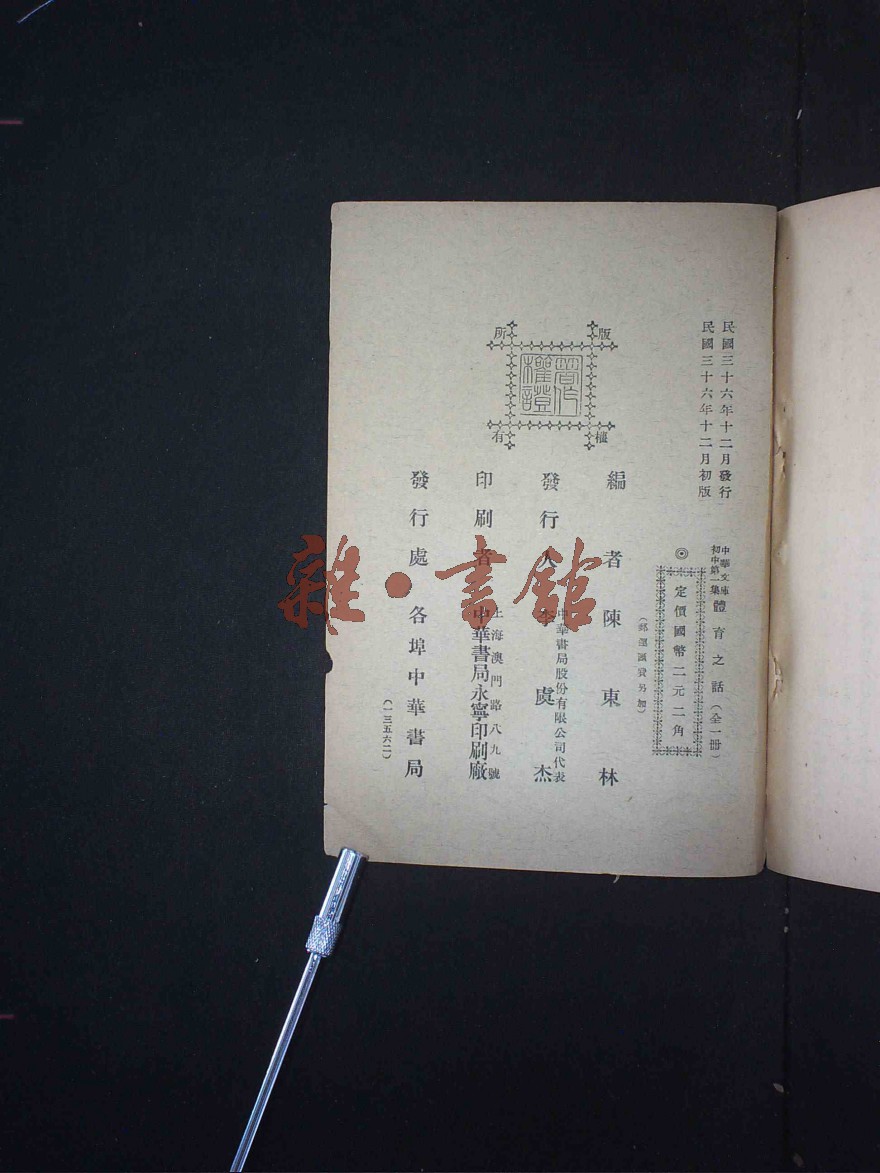 民國三十六年十二月發行
民國三十六年十二月初版
中華文庫
初中第一集
體育之話(全一冊)
◎定價國幣二元二角
(郵運匯費另加)
編者 陳東林
發行人 李虞杰
中華書局股份有限公司代表
印刷者 中華書局永寧印刷廠
上海澳門路八九號
發行處 各埠中華書局
(一三五六二)
版權所有
著作權證
雜·書館